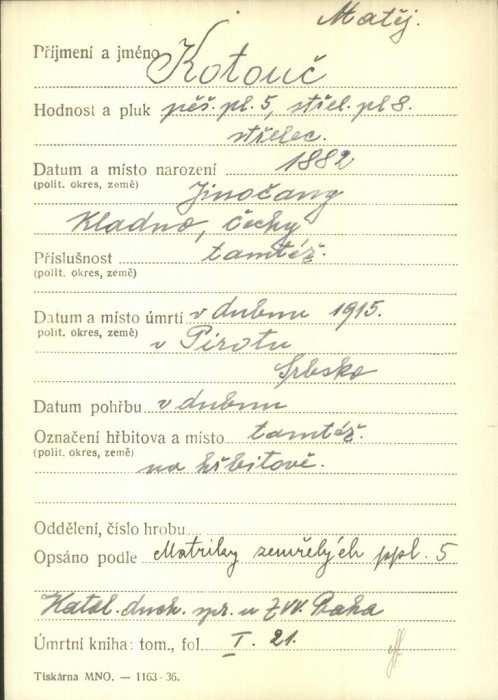 Matěj.
Příjmení a jméno Kotouč
Hodnost a pluk pěš. pl. 5, střel. pl 8.
střelec.
Datum a místo narození 1882
(polit. okres, země)
Jinočany
Kladno, Čechy
Příslušnost tamtéž.
(polit. okres, země)
Datum a místo úmrtí v dubnu 1915.
polit. okres, země)
v Pirotu
Srbsko
Datum pohřbu v dubnu
Označení hřbitova a místo tamtéž.
(polit. okres, země)
na hřbitově.
Oddělení, číslo hrobu
Opsáno podle Matriky zemřelých ppl. 5
Katol. duch. spr. u ZVV. Praha
Úmrtní kniha: tom., fol. I. 21.
Tiskárna MNO. — 1163-36.